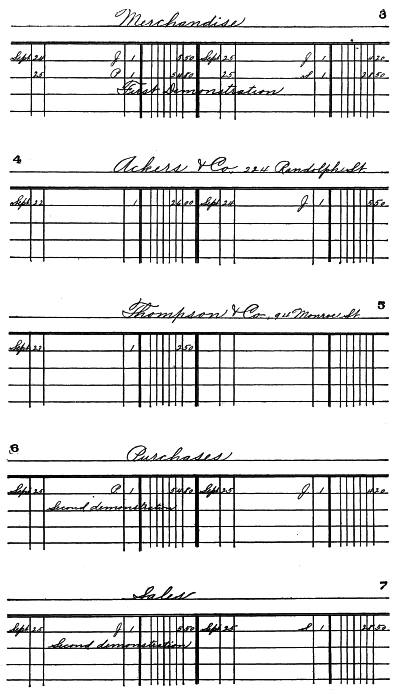 Merchandise 3
Sept 24 J 1 5 50 Sept 25 J 1 4 20
25 P 1 54 80 25 S 1 28 50
First Demonstration
4 Ackers & Co. 224 Randolph St.
Sept 22 1 26 00 Sept 24 J 1 5 50
Thompson & Co. 911 Monroe St 5
Sept 23 1 2 50
6 Purchases
Sept 25 P 1 54 80 Sept 25 J 1 4 20
Second demonstration
Sales 7
Sept 25 J 1 5 50 Sept 25 S 1 28 50
Second demonstration